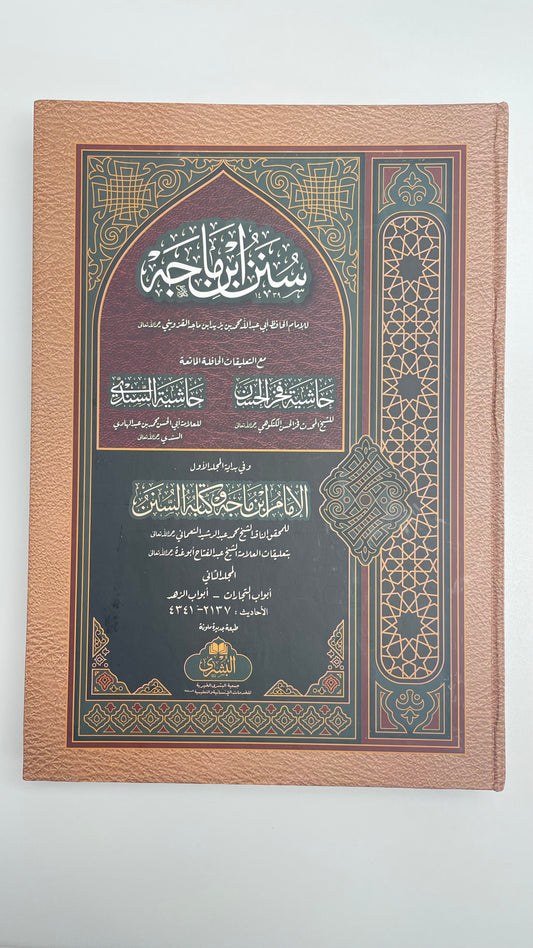 سُنَنُ ابْنِ مَاجَه
للإمام الحافظ أبي عبد الله محمد بن يزيد ابن ماجه القزويني رحمه الله تعالى
مع التعليقات الحافلة الماتعة
حَاشِيَة فَخْر الحَسَن
حَاشِيَة السِّنْدِيّ
للشيخ المحدث فخر الحسن الكنكوهي رحمه الله تعالى
للعلامة أبي الحسن محمد بن عبد الهادي
السندي رحمه الله تعالى
وفي بداية المجلد الأول
الإمَام ابن مَاجَه وَكِتَابُهُ السُّنَن
للمحقق الناقد الشيخ محمد عبد الرشيد النعماني رحمه الله تعالى
بتعليقات العلامة الشيخ عبد الفتاح أبو غدة رحمه الله تعالى
المجلد الثاني
أبواب التجارات – أبواب الزهد
الأحاديث : ٢١٣٧ – ٤٣٤١
طبعة جديدة ملونة
البشرى
جمعية البشرى الخيرية
للخدمات الإنسانية والتعليمية